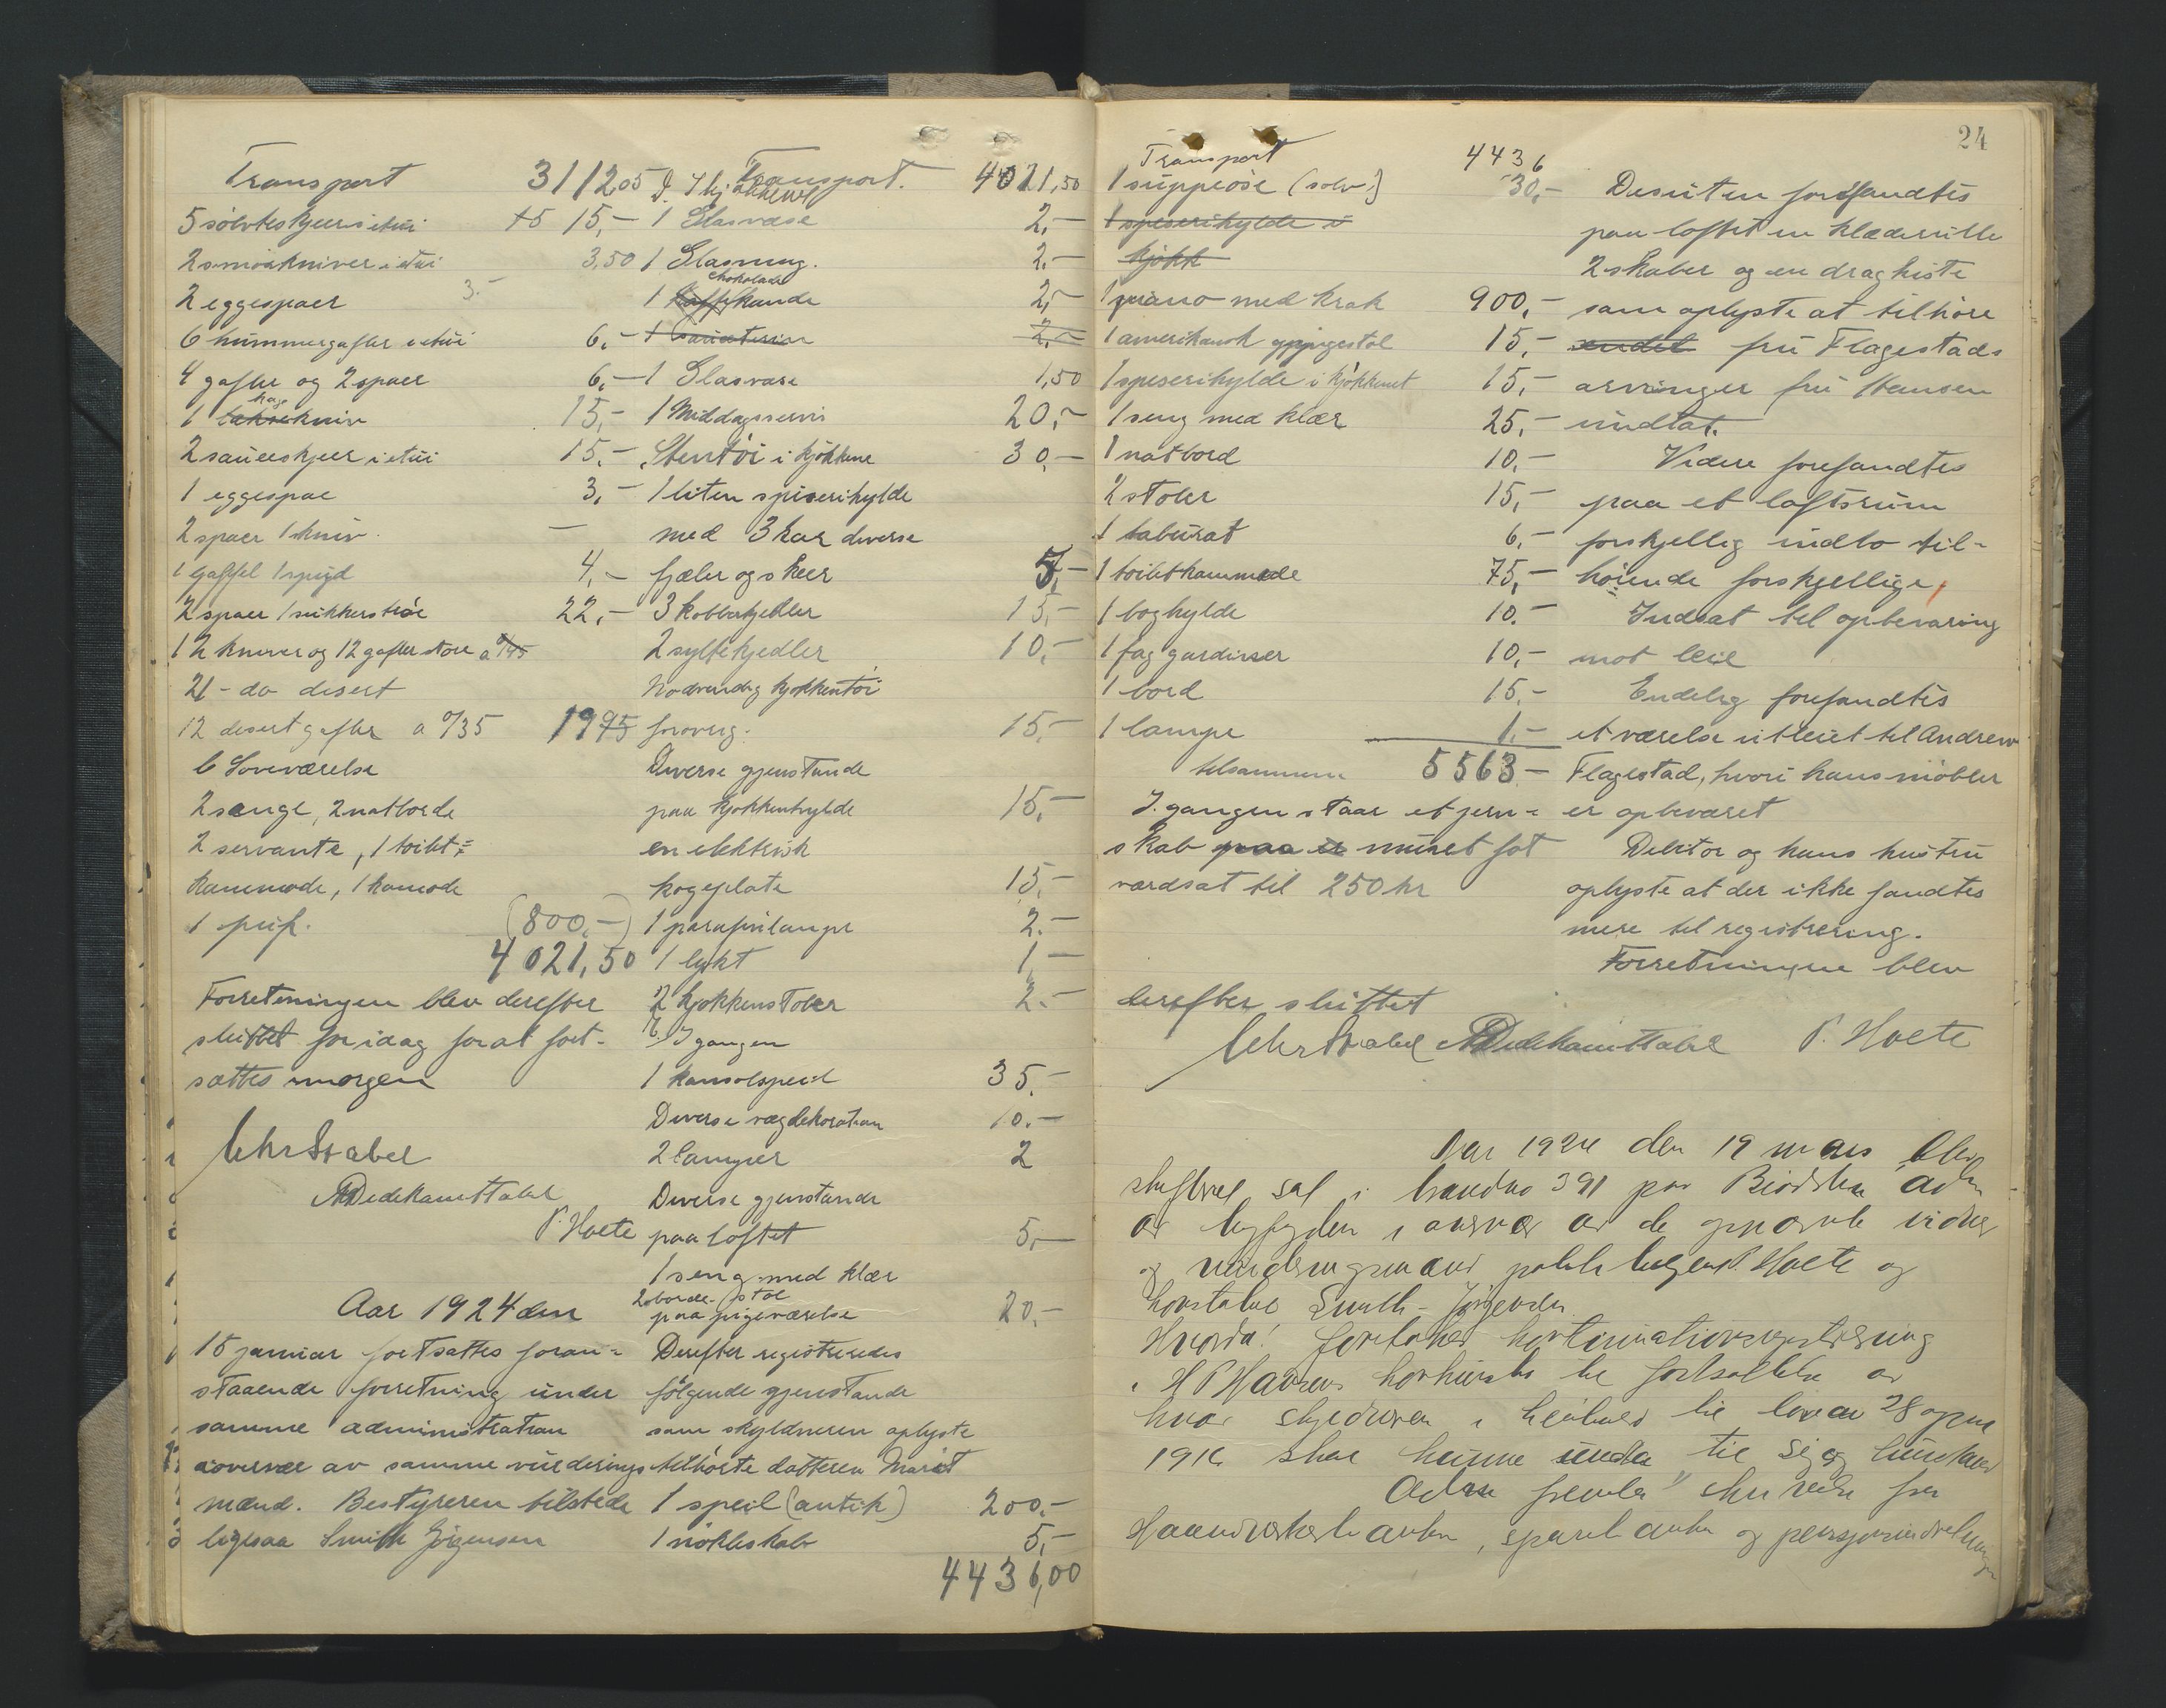 Transport 3112,05
5 sölvteskjeer i etui +5 15,-
2 smörkniver i etui 3,50
2 eggespaer 3.-
6 hummergafler i etui 6,-
4 gafler og 2 spaer 6,-
kage
1 kniv 15,-
2 sauceskjeer i etui 15,-
1 eggespae 3,-
2 spaer 1 kniv. —
1 Gaffel 1 spyd 4,-
2 spaer 1 sukkerströe 22,-
12 kniver og 12 gafler store a
21 - do desert
12 desert gafler a 0/35 1975
6 Soveværelse
2 senge, 2 natborde
2 servante, 1 toilet=
kommode, 1 komode
1 puf. (800,-)
4021,50
Forretningen blev derefter
sluttet for idag for at fort-
sættes imorgen
Chr Stabel
A Dedekam Stabel
P. Hoete
Aar 1924 den
15 januar fortsattes foran=
staaende forretning under
samme administration
i overvær av samme vurderings
mænd. Bestyreren tilstede
ligesaa Smith Jörgensen
Transport. 4021,50
D. I kjökkenet
1 Glasvase 2,-
1 Glasmug. 2,-
chokolade
1 Kaffekande 2,-
1 2,-
1 Glasvase 1,50
1 Middagsservis 20,-
Stentöi i kjökkene 30,-
1 liten spiserihylde
med 3 kar diverse
fjæler og skeer 5,-
3 kobberkjedler 15,-
2 syltekjedler 10,-
Nödvendig kjökkentöi
foröverg. 15,-
Diverse gjenstande
paa kjökkenhylde 15,-
en elektrisk
kogeplate 15,-
1 parafinlampe 2.-
1 lykt 1,-
2 kjökkenstoler 2.-
E. I gangen
1 konsolspeil 35.-
Diverse vægdekoration 10.-
2 lamper 2
Diverse gjenstande
paa loftet 5,-
1 seng med klær
2 borde 1 stol
paa pigeværelse 20.-
Derefter registreredes
fölgende gjenstande
som skyldneren oplyste
tilhörte datteren Marit
1 speil (antik) 200.-
1 nökleskab 5,-
4436,00
24
Transport 4436
1 suppeöse (sölv) 30,-
1 spiserihylde i
kjökk
1 piano med krak 900,-
1 amerikansk gyngestol 15,-
1 spiserihylde i kjökkenet 15,-
1 seng med klær 25,-
1 natbord 10.-
2 stoler 15,-
1 taburat 6,-
1 toiletkommode 75,-
1 boghylde 10.-
1 fag gardiner 10,-
1 bord 15.-
1 lampe 1.-
tilsammen 5563-
I gangen staar et jern=
skab paa muret fot
værdsat til 250 kr
Desuten forefandtes
paa loftet en klæderulle
2 skaber og en dragkiste
som oplyste at tilhöre
fru Flagestads
arvinger fru Hansen
undtat.
Videre forefandtes
paa et loftsrum
forskjellig indbo til-
hörende forskjellige,
Indsat til opbevaring
mot leie
Endelig forefandtes
et værelse utleiet til Andrew
Flagestad, hvori hans möbler
er opbevaret
Debitor og hans hustru
oplyste at der ikke fandtes
mere til registrering.
Forretningen blev
derefter sluttet
Chr Stabel A Dedekam Stabel P. Hoete
Aar 1924 den 19 mars blev
skifteret sat i 391 paa
av byfogden i overvær av de opnævnte vidner
og vurderingsmænd politibetjent P. Hoete og
konstabel Smith-Jörgensen.
Hvorda! foretokes kontinuationsregistrering
i H P Hansens konkursbo til fortsættelse av
hvor skyldneren i henhold til loven 28
191 skal kunne unda til sig og
fra
Haandverksbanken, sparebanken og